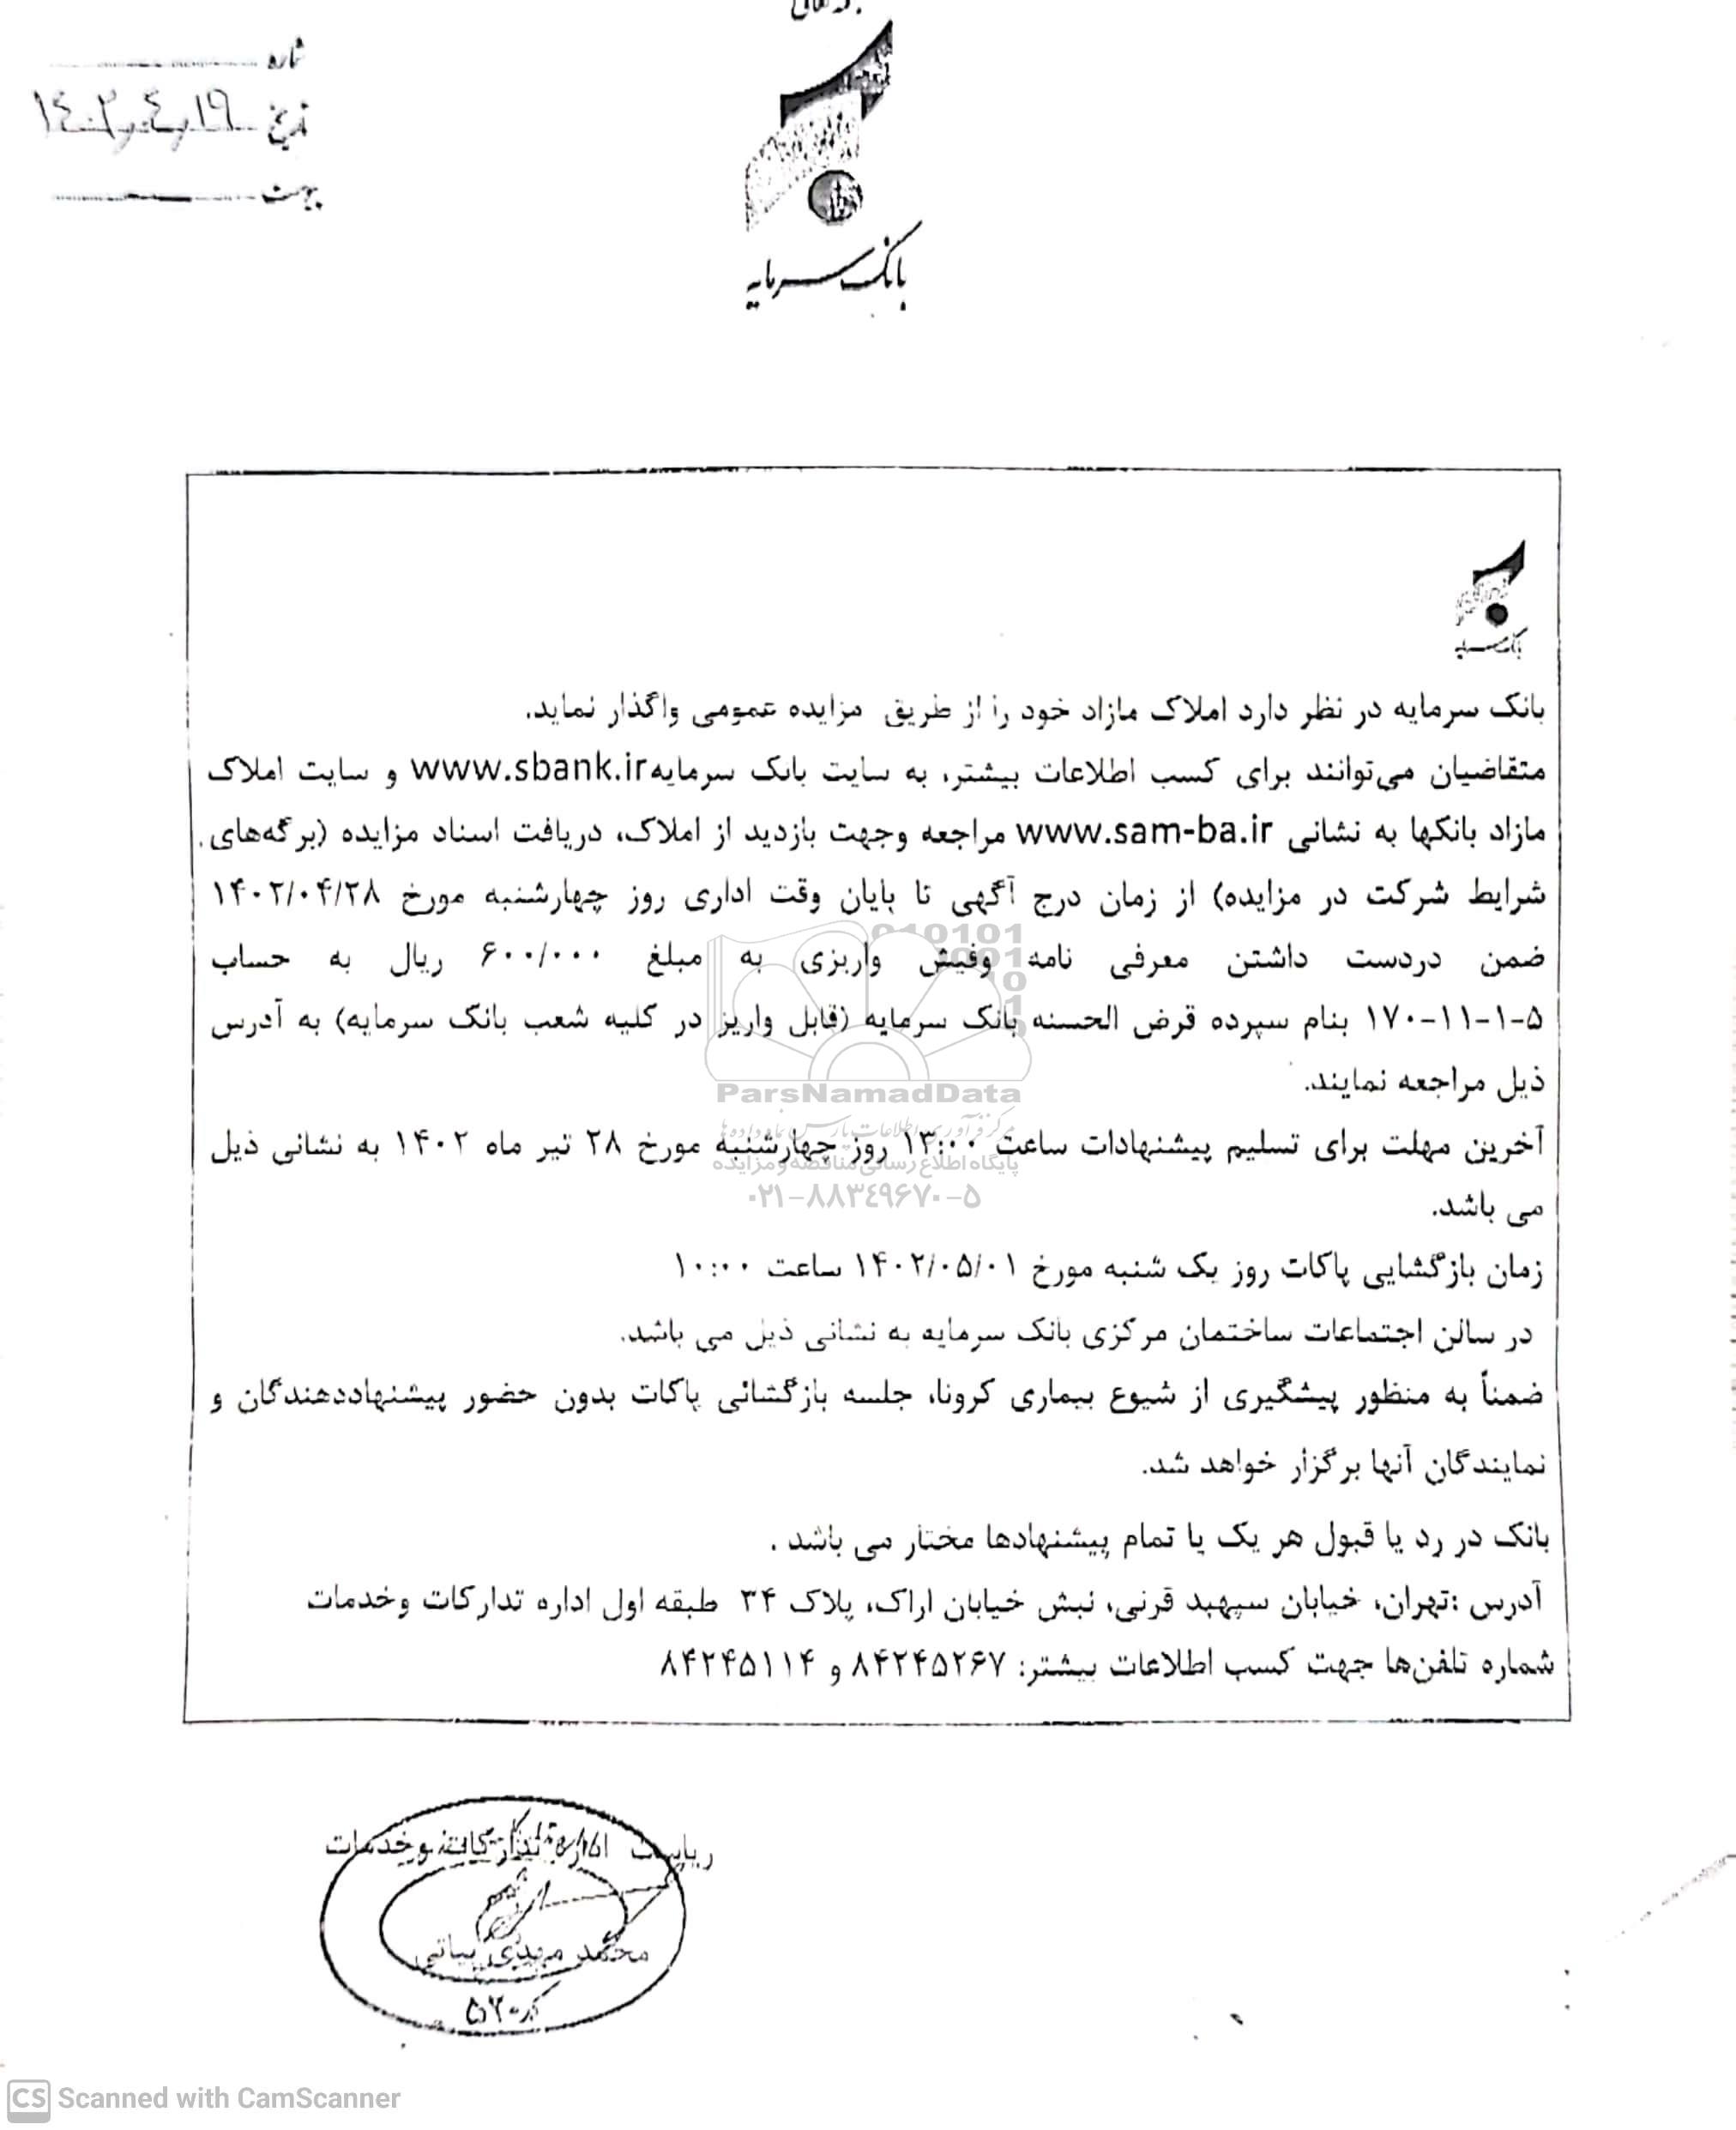 شماره
تاریخ ۱۴۰۲٫۴٫۱۹
پیوست
بانک سرمایه
بانک سرمایه
بانک سرمایه در نظر دارد املاک مازاد خود را از طریق مزایده عمومی واگذار نماید.
متقاضیان می‌توانند برای کسب اطلاعات بیشتر، به سایت بانک سرمایه www.sbank.ir و سایت املاک
مازاد بانکها به نشانی www.sam-ba.ir مراجعه وجهت بازدید از املاک، دریافت اسناد مزایده (برگه‌های
شرایط شرکت در مزایده) از زمان درج آگهی تا پایان وقت اداری روز چهارشنبه مورخ ۱۴۰۲/۰۴/۲۸
ضمن دردست داشتن معرفی نامه وفیش واریزی به مبلغ ۶۰۰/۰۰۰ ریال به حساب
۱۷۰-۱۱-۱-۵ بنام سپرده قرض الحسنه بانک سرمایه (قابل واریز در کلیه شعب بانک سرمایه) به آدرس
ذیل مراجعه نمایند.
آخرین مهلت برای تسلیم پیشنهادات ساعت ۱۳:۰۰ روز چهارشنبه مورخ ۲۸ تیر ماه ۱۴۰۲ به نشانی ذیل
می باشد.
زمان بازگشایی پاکات روز یک شنبه مورخ ۱۴۰۲/۰۵/۰۱ ساعت ۱۰:۰۰
در سالن اجتماعات ساختمان مرکزی بانک سرمایه به نشانی ذیل می باشد.
ضمناً به منظور پیشگیری از شیوع بیماری کرونا، جلسه بازگشائی پاکات بدون حضور پیشنهاددهندگان و
نمایندگان آنها برگزار خواهد شد.
بانک در رد یا قبول هر یک یا تمام پیشنهادها مختار می باشد .
آدرس :تهران، خیابان سپهبد قرنی، نبش خیابان اراک، پلاک ۳۴ طبقه اول اداره تدارکات وخدمات
شماره تلفن‌ها جهت کسب اطلاعات بیشتر: ۸۴۲۴۵۲۶۷ و ۸۴۲۴۵۱۱۴
ParsNamadData
مرکز فرآوری اطلاعات پارس نماد داده‌ها
پایگاه اطلاع رسانی مناقصه و مزایده
۰۲۱-۸۸۳۴۹۶۷۰-۵
ریاست اداره تدارکات وخدمات
محمد مهدی بیاتی
کد ۵۲۰
CS Scanned with CamScanner